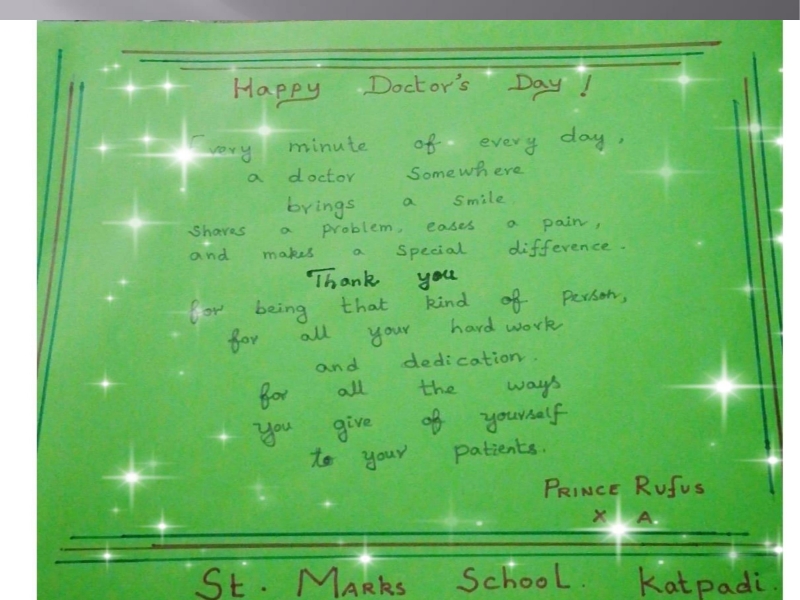 Happy Doctor's Day!
Every minute of every day,
a doctor Somewhere
brings a smile
shares a problem, eases a pain,
and makes a special difference.
Thank you
for being that kind of person,
for all your hard work
and dedication.
for all the ways
you give of yourself
to your patients.
PRINCE RUfUS
X A
St. MARKS SCHOOL. Katpadi.